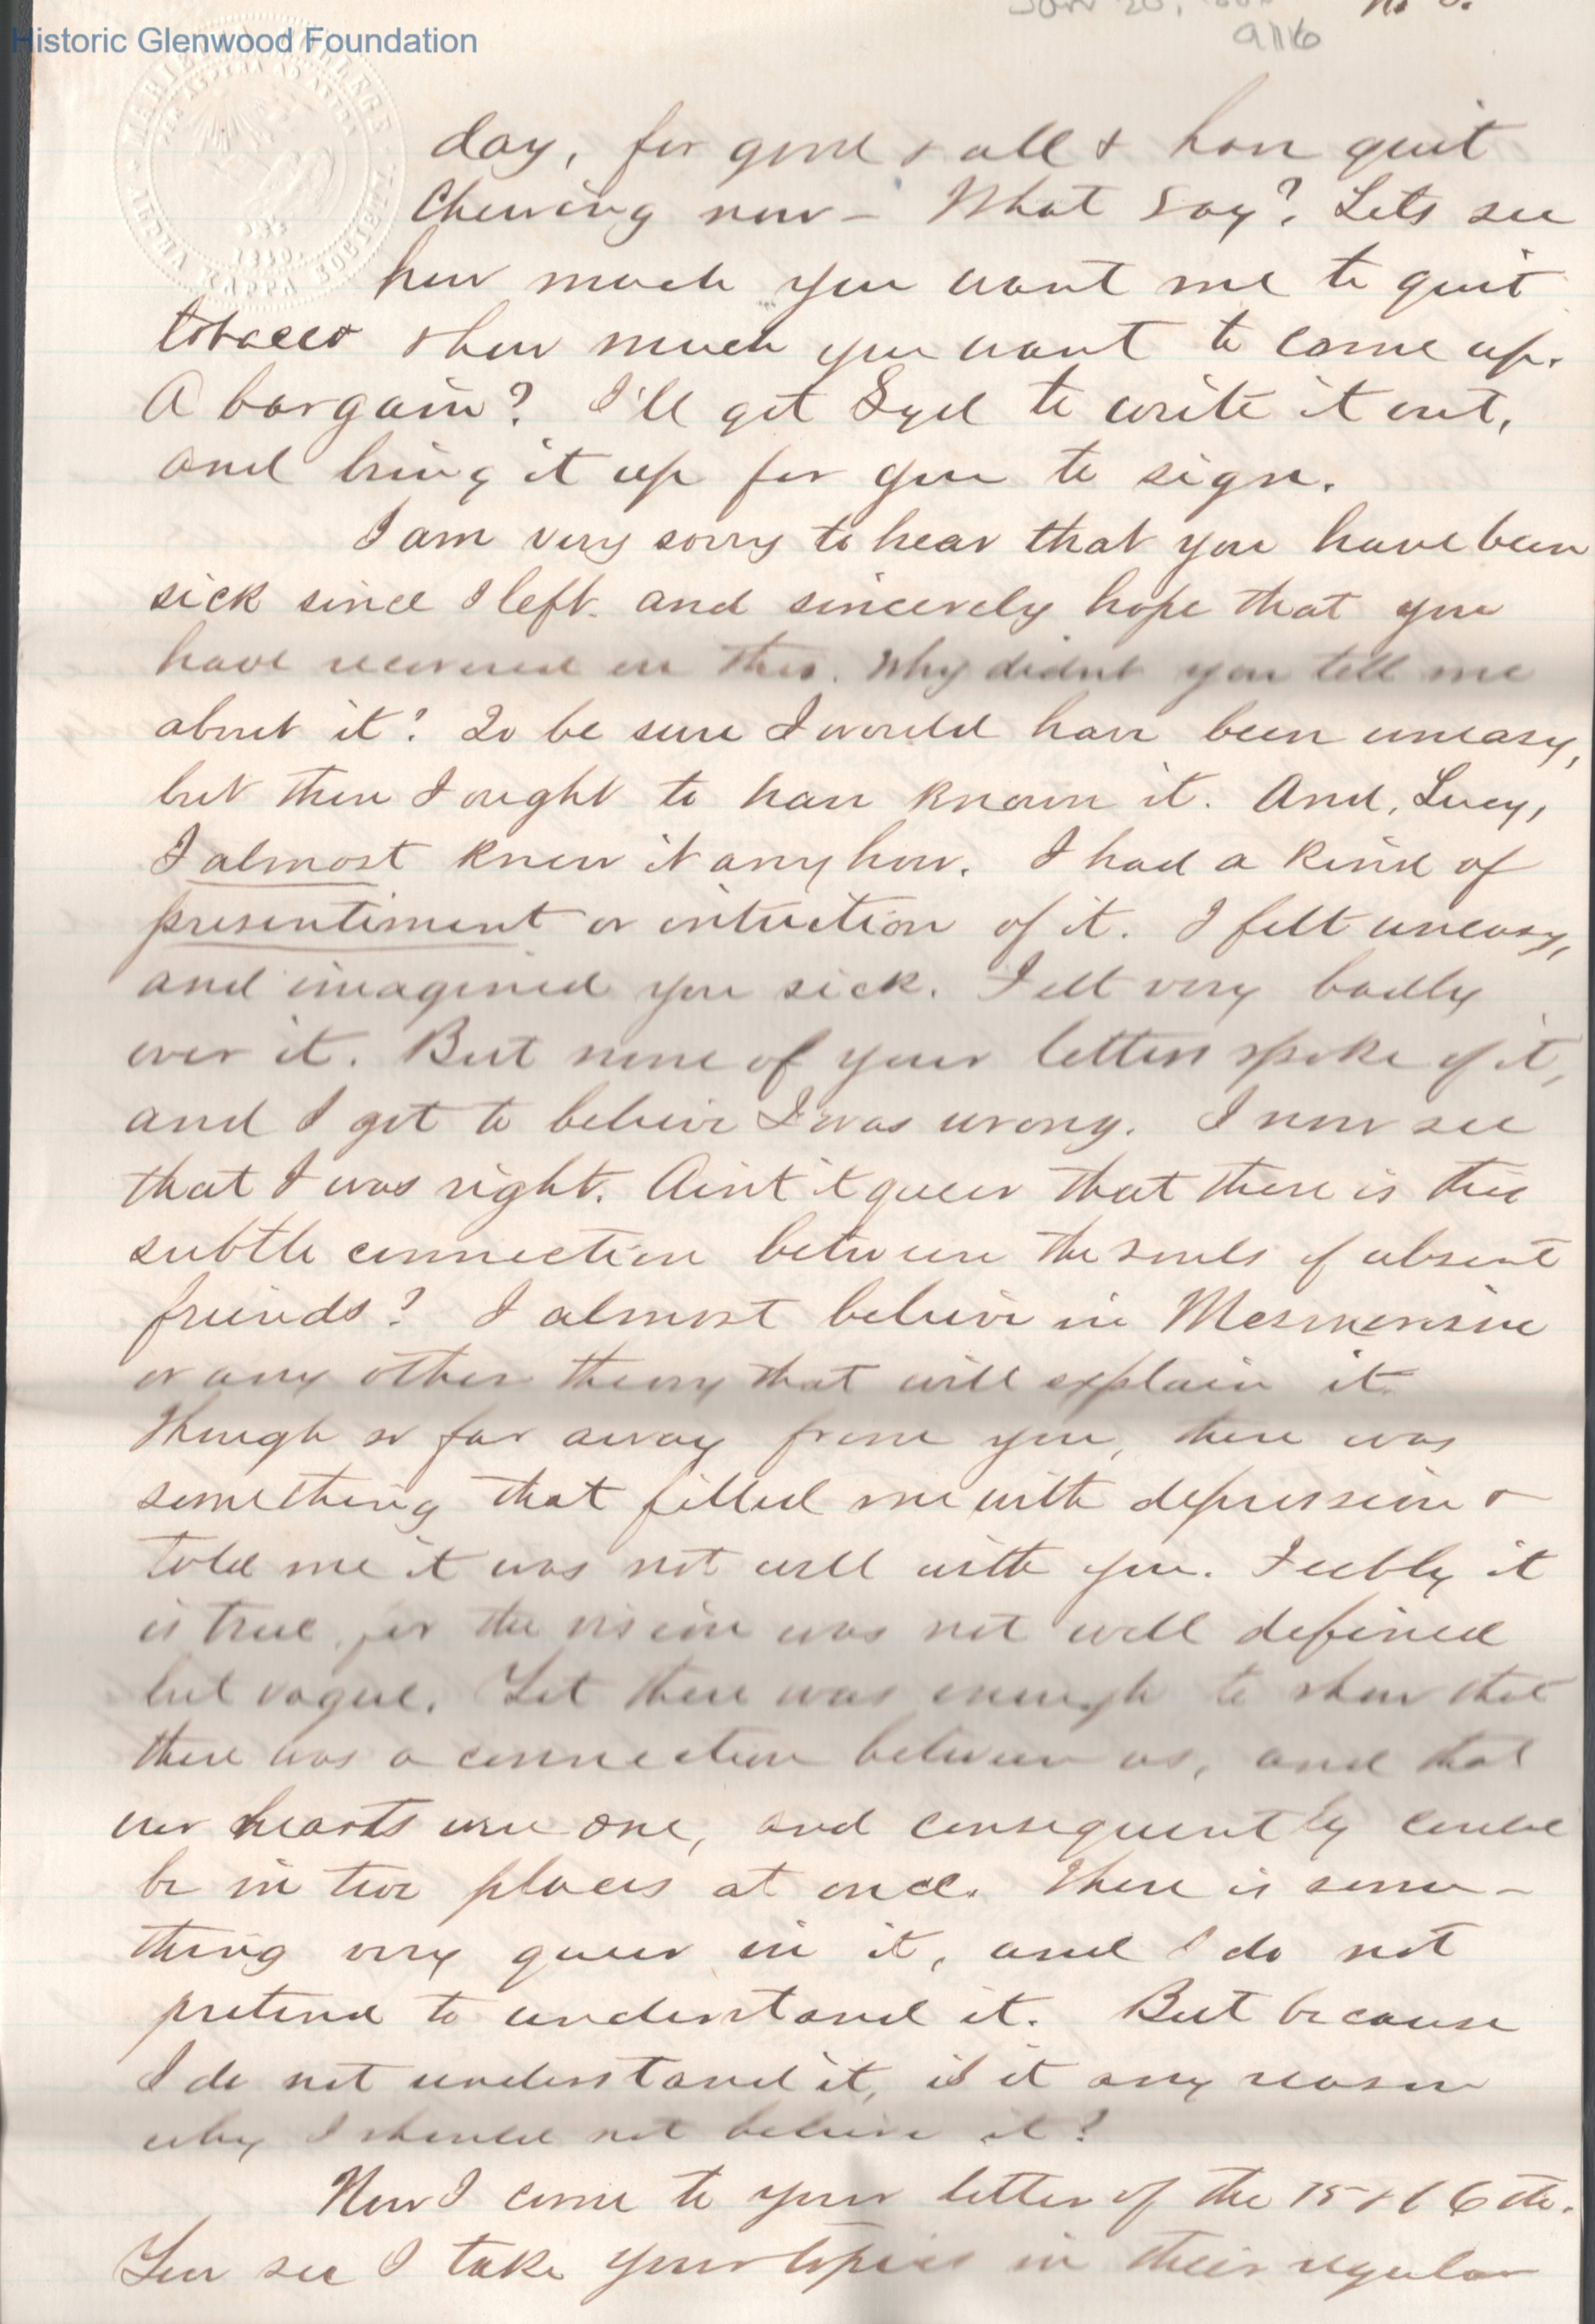 Historic Glenwood Foundation
Jan 20, No 3.
9116
MARIETTA COLLEGE
PER ASPERA AD ASTRA
1840.
ALPHA KAPPA SOCIETY
day, for good & all & have quit
Chewing now – What say? Lets see
how much you want me to quit
tobacco & how much you want to come up.
A bargain? I'll get Syd to write it out,
and bring it up for you to sign.
I am very sorry to hear that you have been
sick since I left and sincerely hope that you
have recovered ere this. Why didnt you tell me
about it? To be sure I would have been uneasy,
but then I ought to have known it. And, Lucy,
I almost knew it anyhow. I had a kind of
presentiment or intuition of it. I felt uneasy,
and imagined you sick. Felt very badly
over it. But none of your letters spoke of it,
and I got to believe I was wrong. I now see
that I was right. Aint it queer that there is this
subtle connection between the souls of absent
friends? I almost believe in Mesmerism
or any other theory that will explain it.
Though so far away from you, there was
something that filled me with depression &
told me it was not well with you. Feebly it
is true, for the vision was not well defined
but vague. Yet there was enough to show that
there was a connection between us, and that
our hearts were one, and consequently could
be in two places at once. There is some-
thing very queer in it, and I do not
pretend to understand it. But because
I do not understand it, is it any reason
why I should not believe it?
Now I come to your letter of the 15 & 16th.
You see I take your topics in their regular